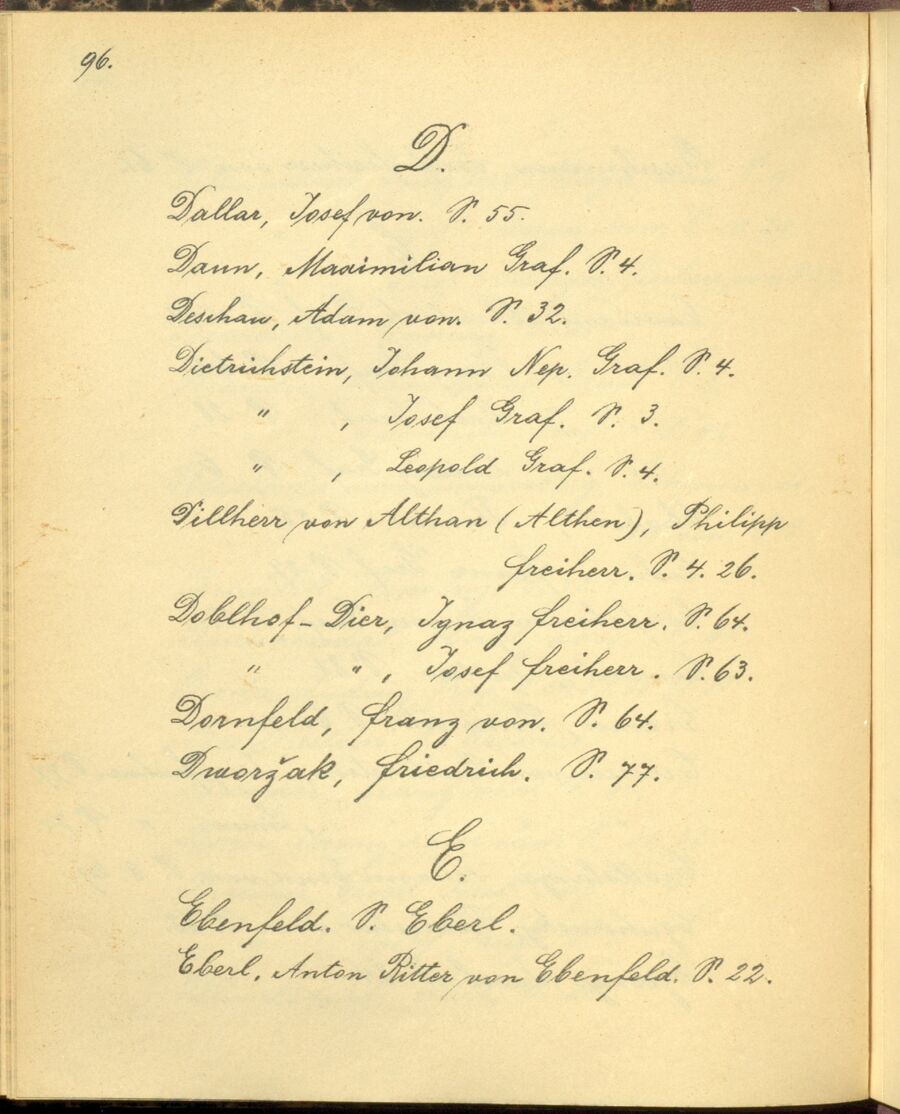 96.
D.
Dallar, Josef von. S. 55.
Daun, Maximilian Graf. S. 4.
Deschau, Adam von. S. 32.
Dietrichstein, Johann Nep. Graf. S. 4.
" , Josef Graf. S. 3.
" , Leopold Graf. S. 4.
Dillherr von Althan (Althen), Philipp
Freiherr. S. 4. 26.
Doblhof-Dier, Ignaz Freiherr. S. 64.
" " , Josef Freiherr. S. 63.
Dornfeld, Franz von. S. 64.
Dworžak, Friedrich. S. 77.
E.
Ebenfeld. S. Eberl.
Eberl, Anton Ritter von Ebenfeld. S. 22.